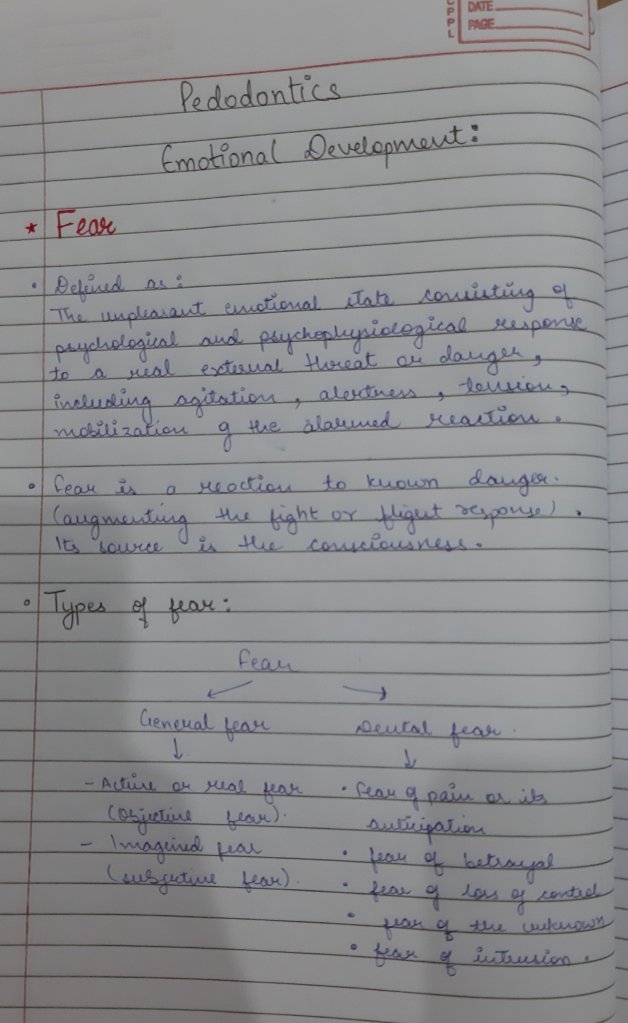 CPPL
DATE
PAGE
Pedodontics
Emotional Development:
* Fear
• Defined as:
The unpleasant emotional state consisting of
psychological and psychophysiological response
to a real external threat or danger,
including agitation, alertness, tension,
mobilization of the alarmed reaction.
• Fear is a reaction to known danger.
(augmenting the fight or flight response).
Its source is the consciousness.
• Types of fear:
Fear
General fear
Dental fear.
- Active or real fear
(objective fear).
- Imagined fear
(subjective fear).
• Fear of pain or its
anticipation
• fear of betrayal
• fear of loss of control
• fear of the unknown
• fear of intrusion.